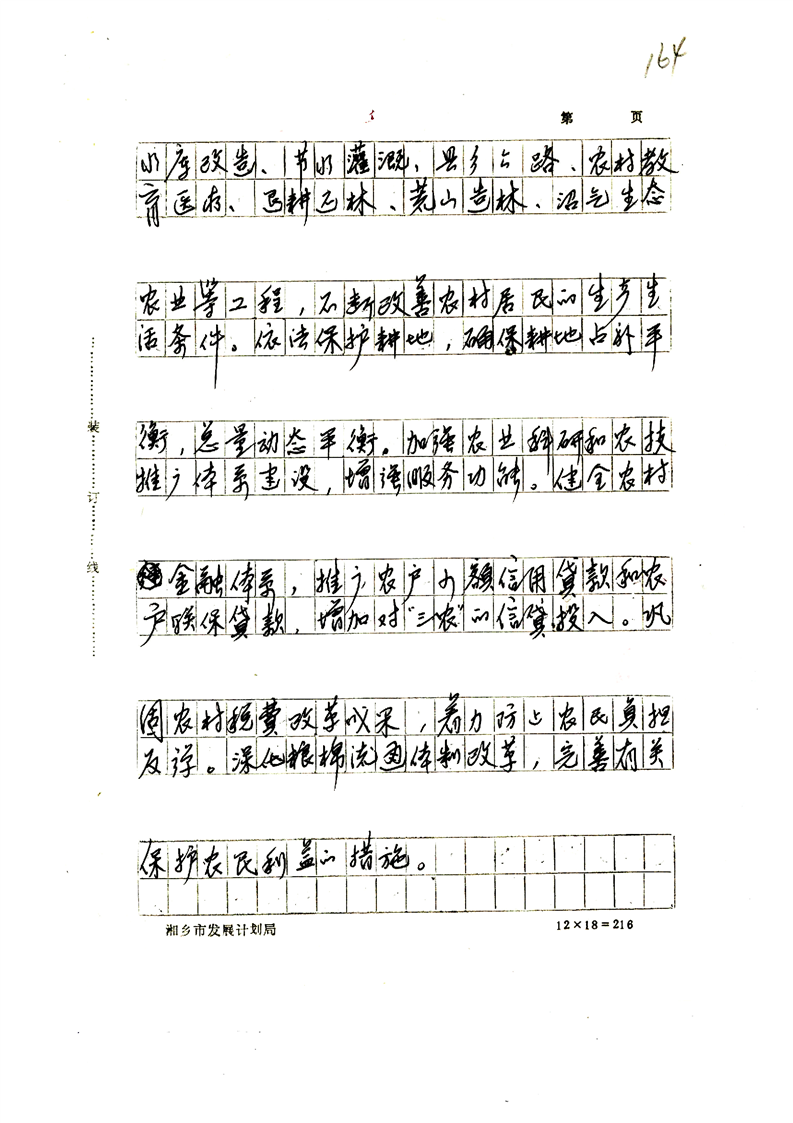 164
第 页
水库改造、节水灌溉、县乡公路、农村教
育医疗、退耕还林、荒山造林、沼气生态
农业等工程，不断改善农村居民的生产生
活条件。依法保护耕地，确保耕地占补平
衡，总量动态平衡。加强农业科研和农技
推广体系建设，增强服务功能。健全农村
金融体系，推广农户小额信用贷款和农
户联保贷款，增加对“三农”的信贷投入。巩
固农村税费改革成果，着力防止农民负担
反弹。深化粮棉流通体制改革，完善有关
保护农民利益的措施。
湘乡市发展计划局 12×18=216
装
订
线